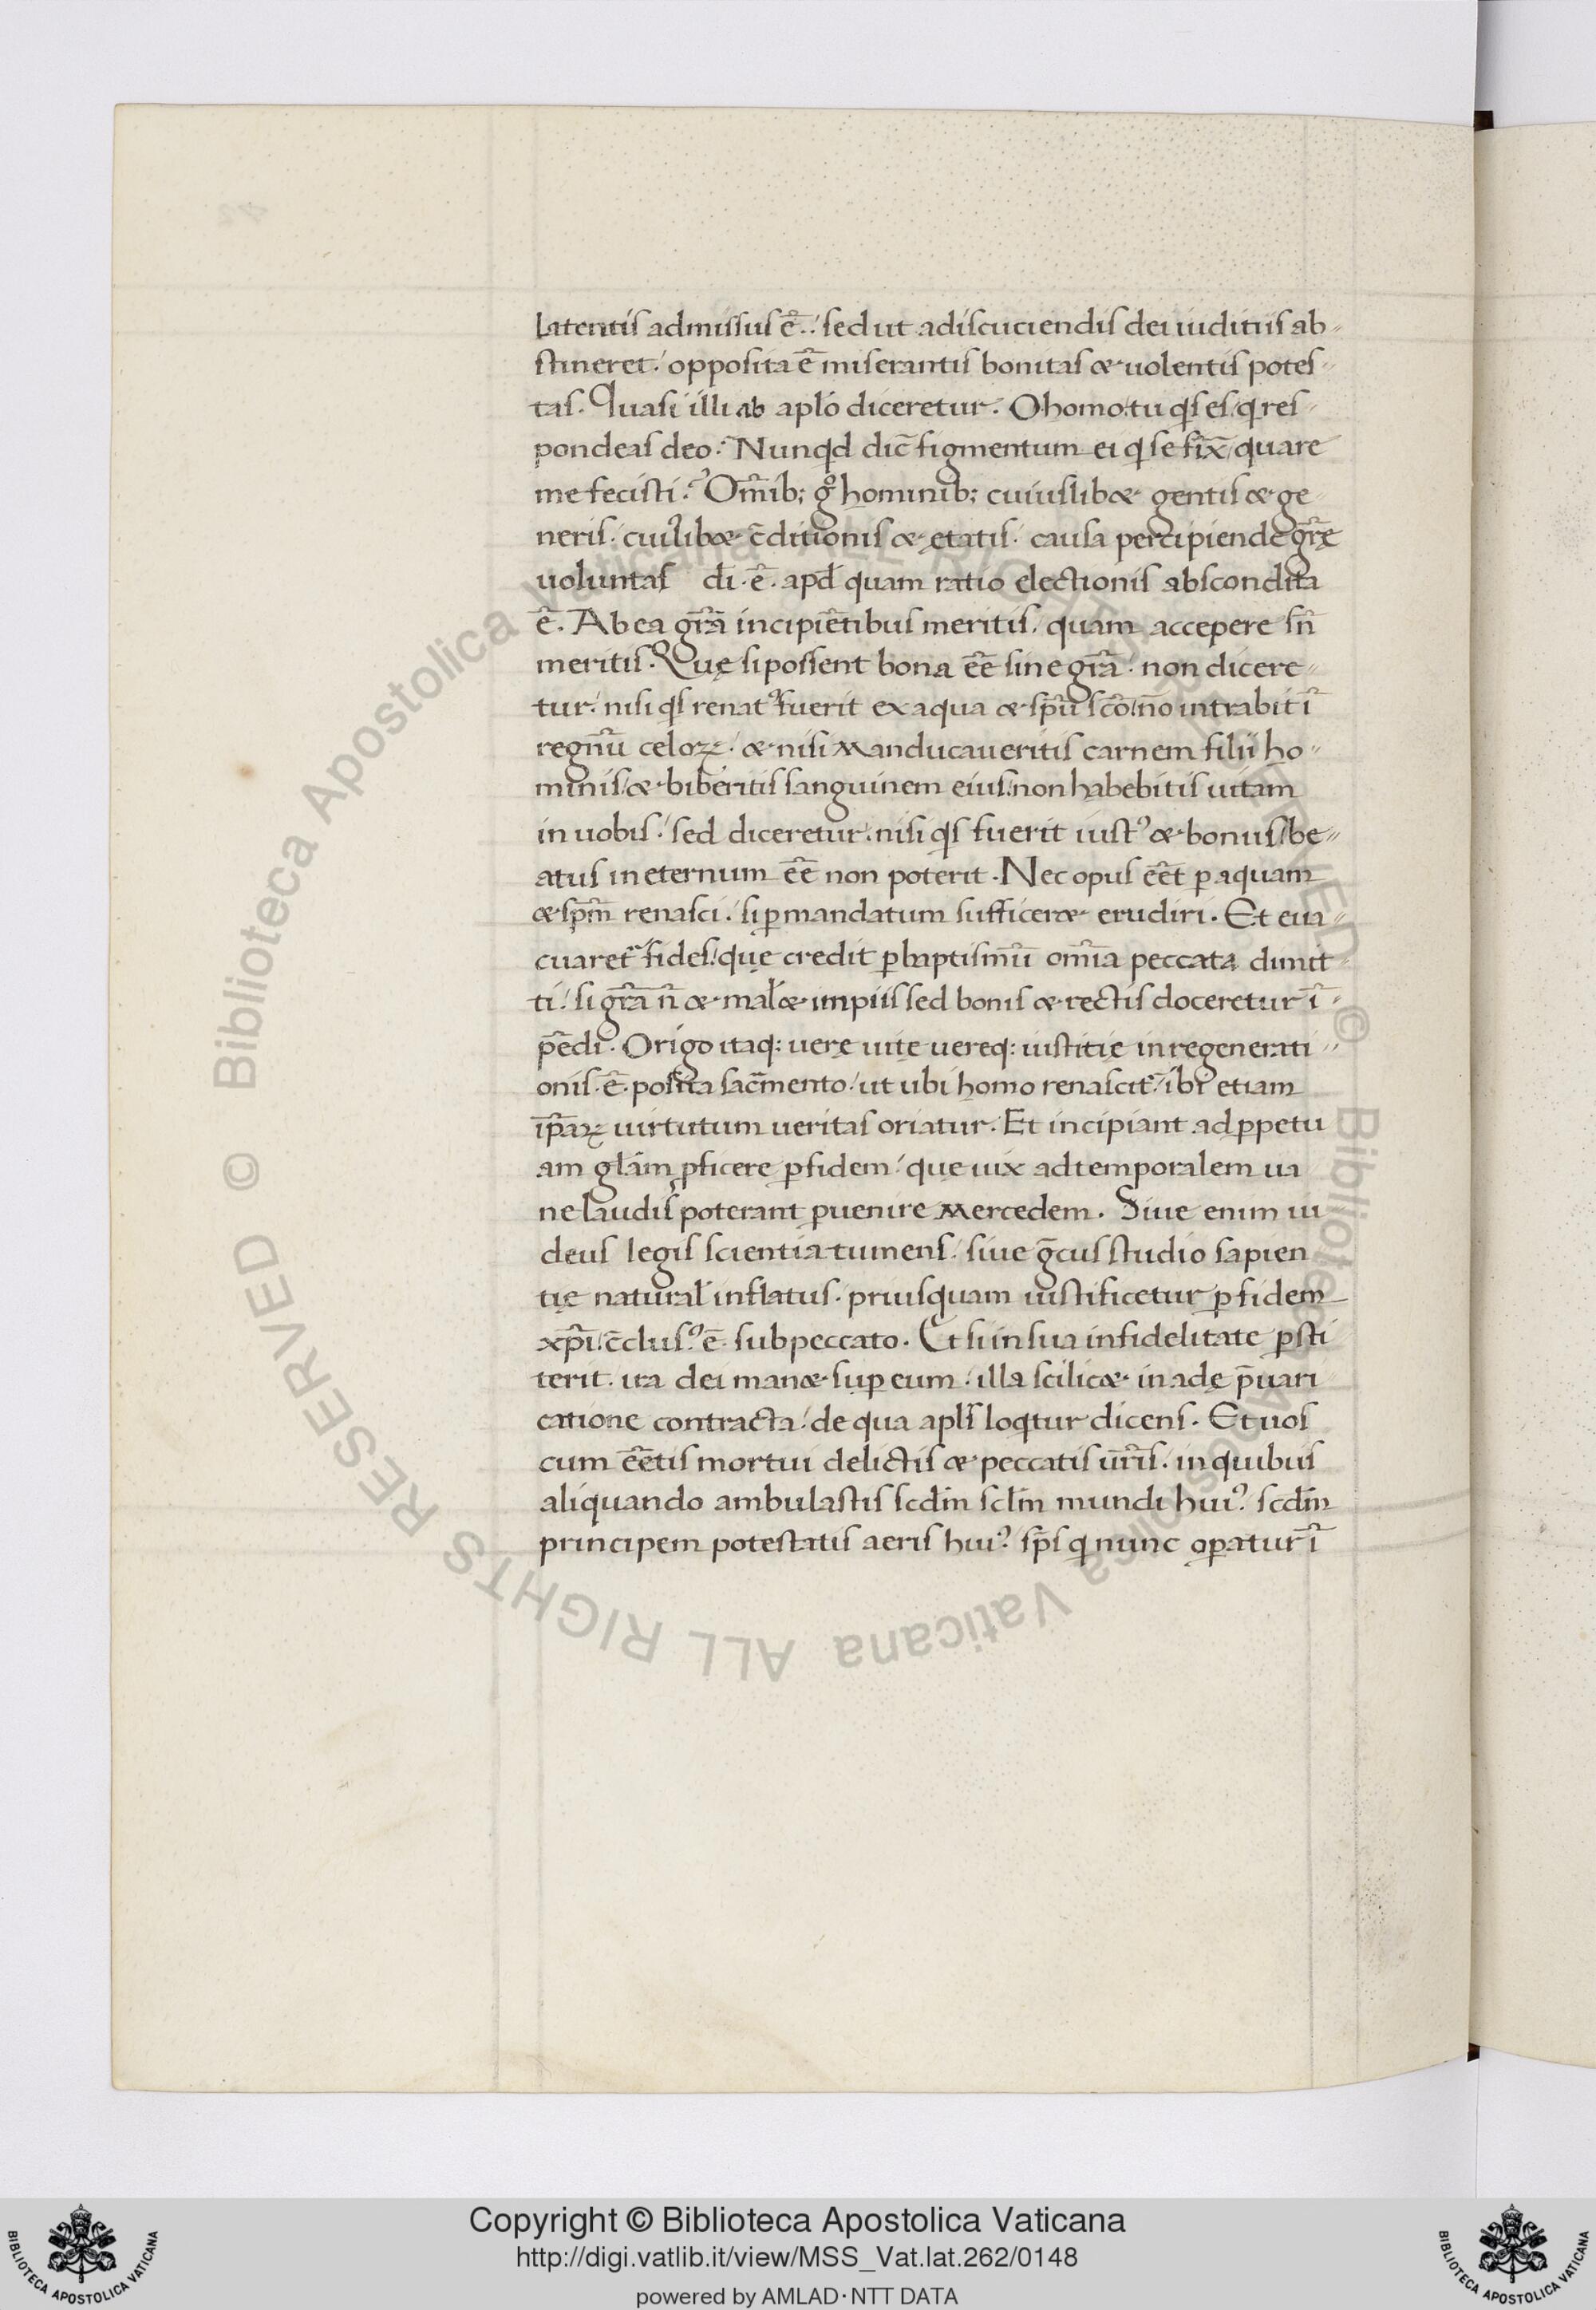 latentis admissus ē. sed ut adiscuciendis dei iuditiis ab-
stineret. opposita ē miserantis bonitas & uolentis potes-
tas. Quasi illi ab aplo diceretur. O homo tu qs es q res-
pondeas deo. Nunqd dic̄ figmentum ei q se fix̄ quare
me fecisti? Om̄ib; g hominib; cuiuslib& gentis & ge-
neris. cuiuslib& c̄ditionis & ętatis. causa percipiende gr̄ę
uoluntas di. ē. apd quam ratio electionis abscondita
ē. Ab ea gr̄a incipiētibus meritis. quam accepere sn̄
meritis. Quę si possent bona ēē sine gr̄a. non dicere-
tur. nisi qs renat⁹ fuerit ex aqua & sp̄u sc̄o no intrabit ī
regnū celoꝝ. & nisi manducaueritis carnem filii ho-
minis & biberitis sanguinem eius non habebitis uitam
in uobis. sed diceretur. nisi qs fuerit iust⁹ & bonus be-
atus in eternum ēē non poterit. Nec opus ēēt ꝑ aquam
& sp̄m renasci. si ꝑ mandatum suffic&& erudiri. Et eua-
cuaret fides quę credit ꝑ baptismū om̄ia peccata dimit-
ti. si gr̄a n̄ & mal& impiis sed bonis & rectis doceretur ī-
pēdi. Origo itaq: uerę uitę uereq: iustitię in regenerati-
onis ē. posita sacmento. ut ubi homo renascit ibi etiam
ip̄aꝝ uirtutum ueritas oriatur. Et incipiant ad ꝑpetu
am glām ꝓficere ꝑ fidem. quę uix ad temporalem ua
ne laudis poterant ꝑuenire mercedem. Siue enim iu
deus legis scientia tumens. siue gcus studio sapien
tię natural inflatus. priusquam iustificetur ꝑ fidem
xp̄i c̄clus⁹ ē sub peccato. Et si in sua infidelitate ꝑsti
terit. ira dei man& suꝑ eum. illa scilic& in adę p̄uari
catione contracta. de qua apls loqtur dicens. Et uos
cum ēētis mortui delictis & peccatis ur̄is. in quibus
aliquando ambulastis scdm sclm mundi hui⁹ scdm
principem potestatis aeris hui⁹ sp̄s q nunc oꝑatur ī
Copyright © Biblioteca Apostolica Vaticana
http://digi.vatlib.it/view/MSS_Vat.lat.262/0148
powered by AMLAD·NTT DATA
BIBLIOTECA APOSTOLICA VATICANA
BIBLIOTECA APOSTOLICA VATICANA
© Biblioteca Apostolica Vaticana ALL RIGHTS RESERVED © Biblioteca Apostolica Vaticana ALL RIGHTS RESERVED